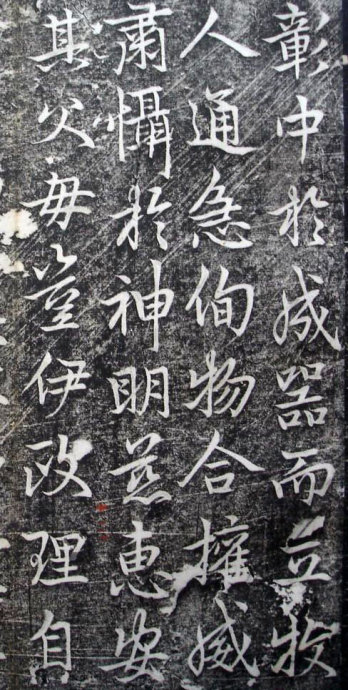 彰中於成器而立牧
人通急徇物合擁威
肅懾於神明慈惠安
其父毋豈伊政理自